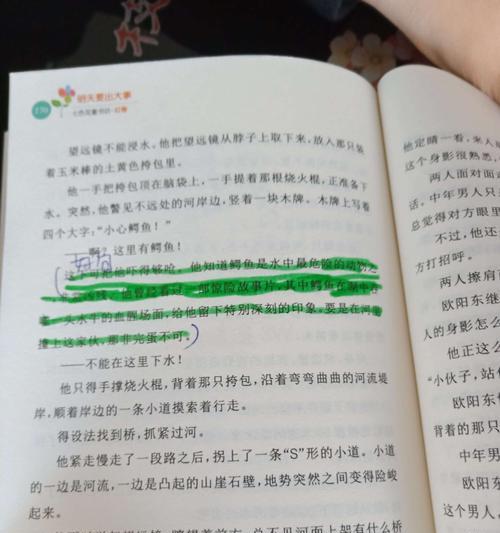 170
明天要出大事
七色花童书坊·红卷
望远镜不能浸水。他把望远镜从脖子上取下来,放入那只装
着玉米棒的土黄色挎包里。
他一手把挎包顶在脑袋上,一手提着那根烧火棍,正准备下
水。突然,他瞥见不远处的河岸边,竖着一块木牌。木牌上写着
四个大字:“小心鳄鱼!”
啊?这里有鳄鱼!
这下可把他吓得够呛。他知道鳄鱼是水中最危险的动物之
他曾经看过一部惊险故事片,其中鳄鱼在湖中
一头水牛的血腥场面,给他留下特别深刻的印象,要是在河里
撞上这家伙,那非完蛋不可。
——不能在这里下水!
他只得手撑烧火棍,背着那只挎包,沿着弯弯曲曲的河流堤
岸,顺着岸边的一条小道摸索着行走。
得设法找到桥,抓紧过河。
他紧走慢走了一段路之后,拐上了一条“S”形的小道。小道
的一边是河流,一边是凸起的山崖石壁,地势突然之间变得险峻
起来。
总不见河面上架有什么桥
他定睛一看,来人
这个身影很熟悉,
两人面对面
话。中年男人只
总觉得对方眼里
不过,他还
方打招呼。
两人擦肩
欧阳东继
人的身影怎么
他正这么
“小伙子,站
欧阳东
背着的那只
中年男
欧阳
这个男人。